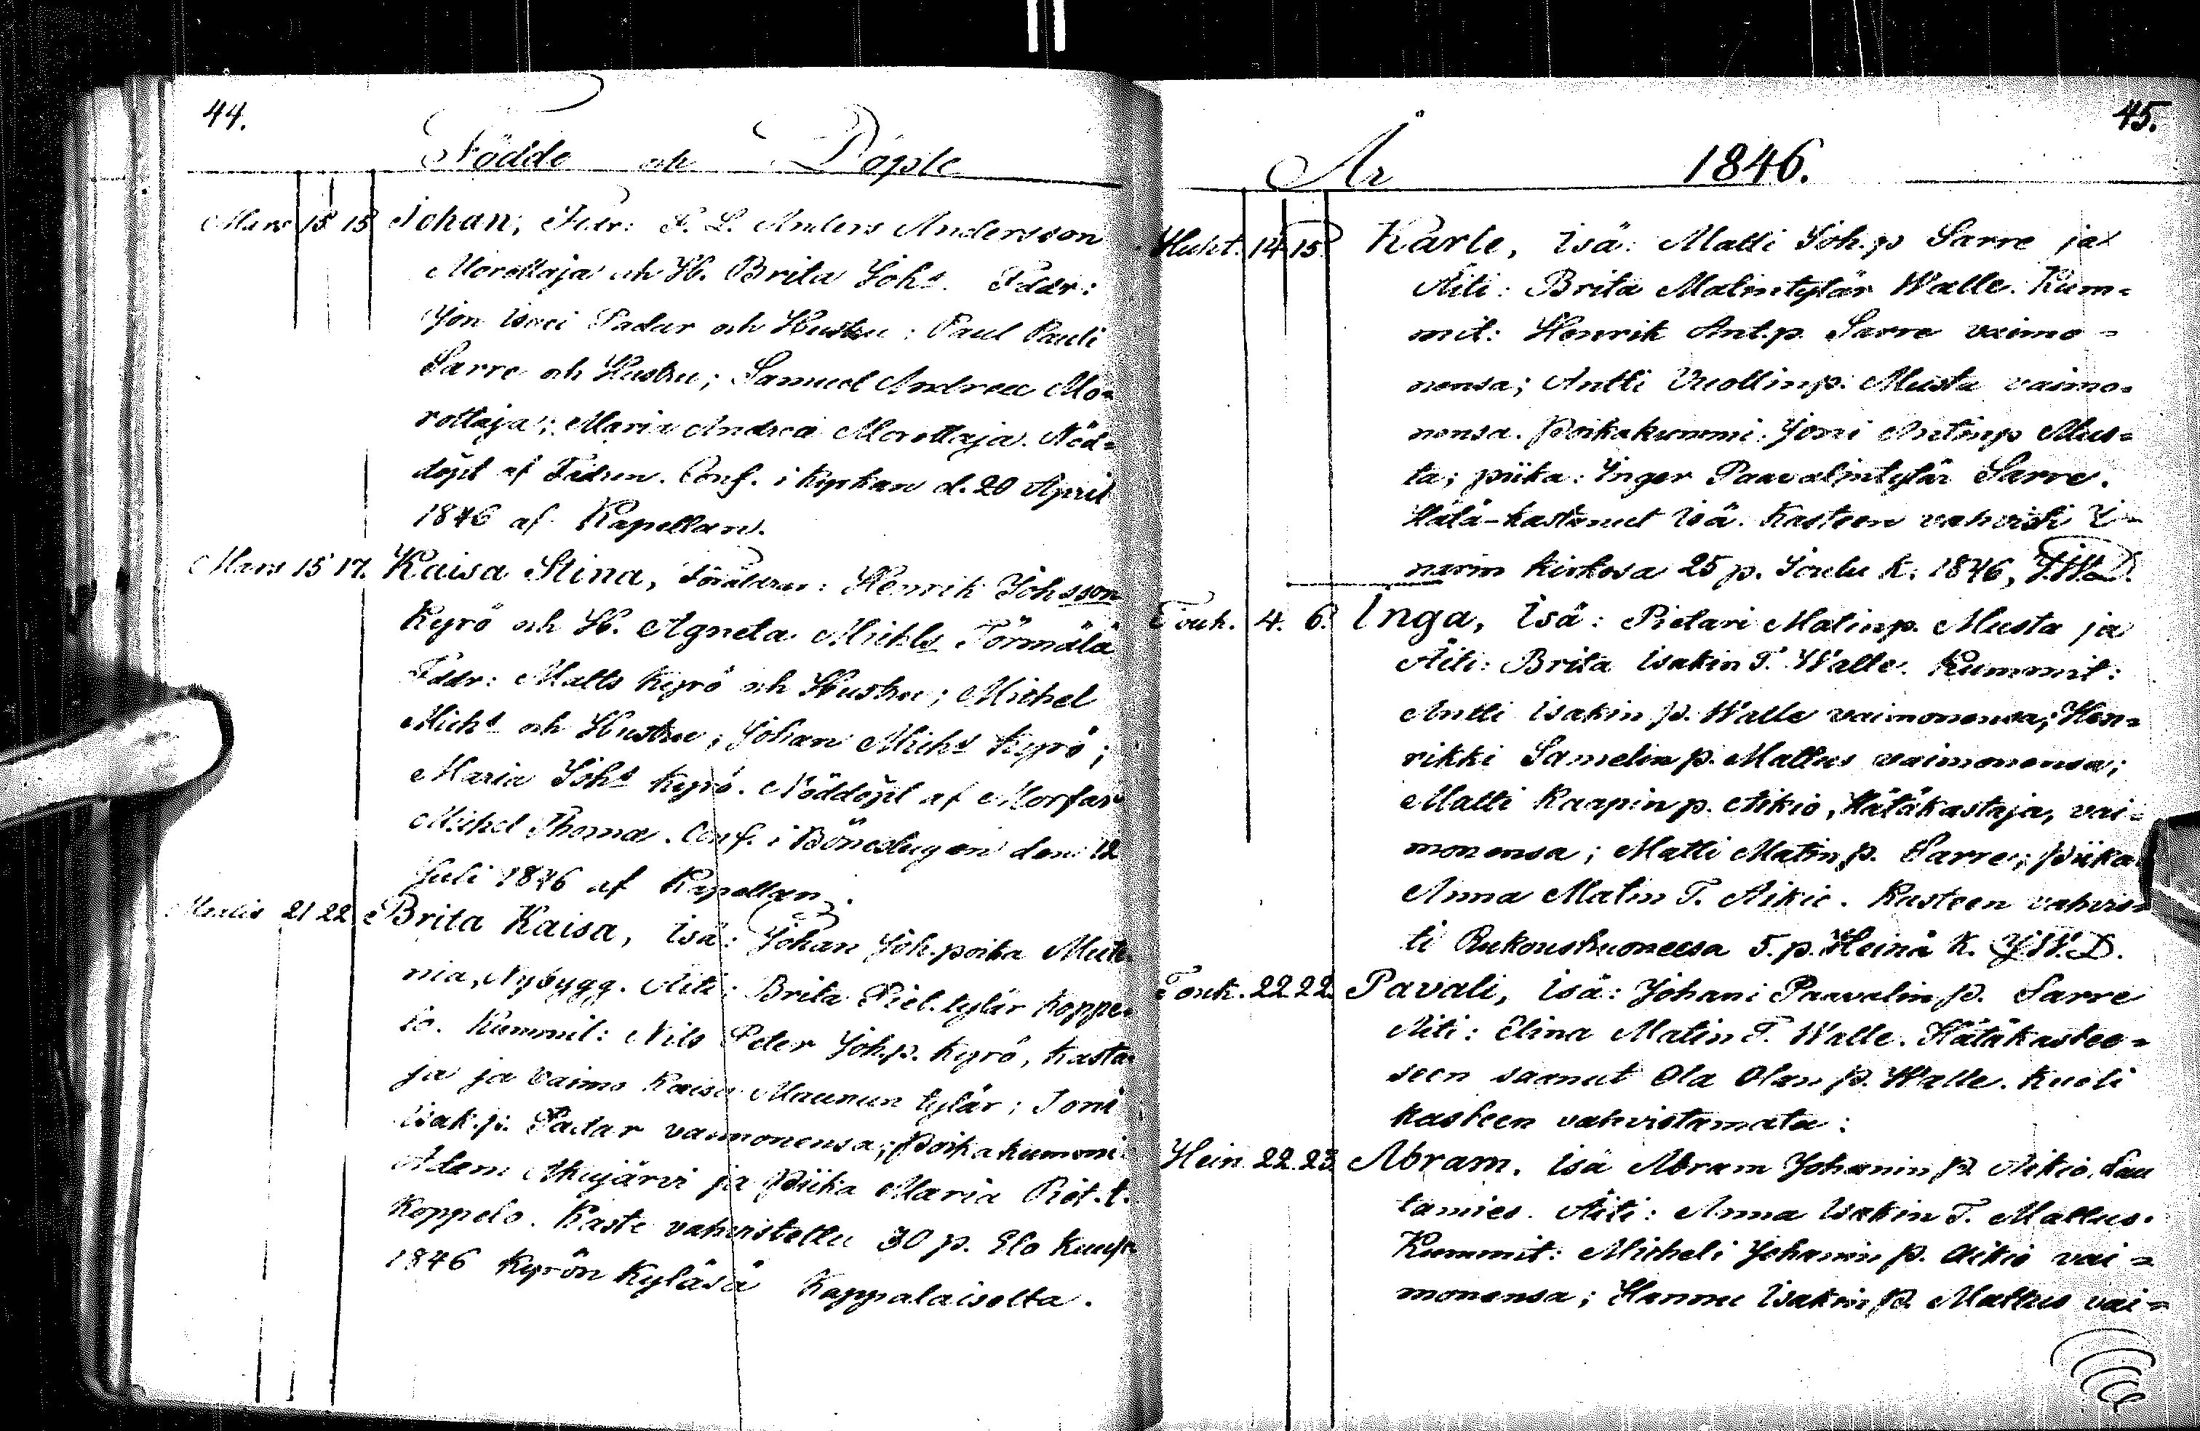 44.
Födde och Döpte
Mars 15 15 Johan, Fdr: F. L. Anders Andersson
Morottaja och H. Brita Johs. Fddr:
Jon Isaci Padar och Hustru; Paul Pauli
Sarre och Hustru; Samuel Andreæ Mo=
rottaja; Maria Andreæ Morottaja. Nöd=
döpt af Fadren. Conf. i Kyrkan d. 20 April
1846 af Kapellan.
Mars 15 17. Kaisa Stina, Föräldrar: Henrik Johsson
Kyrö och H. Agneta Michls Törmälä
Fddr: Matts Kyrö och Hustru; Michel
Michs och Hustru; Johan Michs Kyrö;
Maria Johs Kyrö. Nöddöpt af Morfar
Michel Thomæ. Conf. i Bönestugan den 12
Juli 1846 af Kapellan.
21 22 Brita Kaisa, Isä: Johan Joh.poika Mut
nia, Nybygg. Äiti: Brita Piet.tytär Koppe=
lo. Kummit: Nils Peter Joh.p. Kyrö, Kasta=
ja ja vaimo Kaisa Maunun tytär; Joni
Isak.p. Padar vaimonensa; Poikakummi:
Adam Akujärvi ja Piika Maria Piet.t.
Koppelo. Kaste vahvistettu 30 p. Elo Kuuta
1846 Kyrön Kyläsä Kappalaiselta.
45.
År 1846.
Huht. 14 15. Karle, Isä: Matti Joh.p Sarre ja
Äiti: Brita Matintytär Walle. Kum=
mit: Henrik Ant.p. Sarre vaimo=
nensa; Antti Vuollinp. Musta vaimo=
nensa. Poikakummi: Joni Antinp Mus=
ta; piika: Inger Paavalintytär Sarre.
Hätä-kastanut Isä. Kasteen vahvisti I=
narin kirkosa 25 p. Joulu K. 1846, J.W.D.
Touk. 4. 6. Inga, Isä: Pietari Matinp. Musta ja
Äiti: Brita Isakin T. Walle. Kummit:
Antti Isakin p. Walle vaimonensa; Hen=
rikki Samelin p. Mattus vaimonensa;
Matti Kaapin p. Aikio, Hätäkastaja, vai=
monensa; Matti Matin p. Sarre; piika
Anna Matin T. Aikio. Kasteen vahvis=
ti Rukoushuoneesa 5. p. Heinä K. J.W.D.
Touk. 22 22 Pavali, Isä: Johani Paavalin p. Sarre
Äiti: Elina Matin T. Walle. Hätäkastee=
seen saanut Ola Olan p. Walle. Kuoli
kasteen vahvistamata:
Hein. 22. 23. Abram. Isä Abram Johanin p. Aikio. Lau
tamies. Äiti: Anna Isakin T. Mattus.
Kummit: Micheli Johanin p. Aikio vai=
monensa; Hannu Isakin p. Mattus vai=